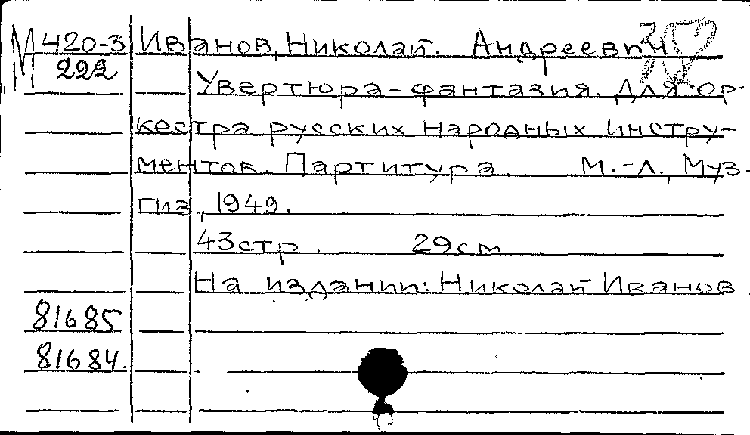 М 420-3 Иванов, Николай Андреевич
222 Увертюра-фантазия. Для ор-
кестра русских народных инстру-
ментов. Партитура. М.-Л., Муз-
гиз, 1949.
43 стр. 29 см
На издании: Николай Иванов.
81685
81684.